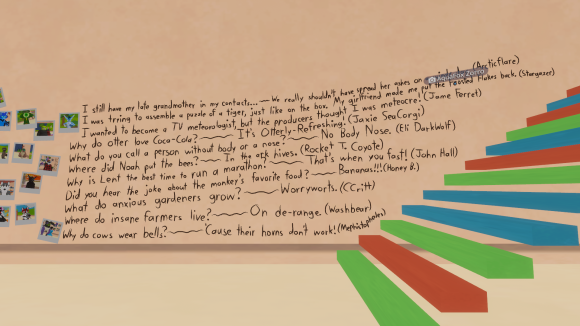 I still have my late grandmother in my contacts... — We really shouldn't have spread her ashes on (Arcticflare)
I was trying to assemble a puzzle of a tiger, just like on the box. My girlfriend made me put the Flakes back. (Stargazer)
I wanted to become a TV meteorologist, but the producers thought I was meteocre! (Jame Ferret)
Why do otter love Coca-Cola? It's Otterly-Refreshing! (Jaxie SeaCorgi)
What do you call a person without body or a nose? No Body Nose. (Eli Darkwolf)
Where did Noah put the bees? In the ark hives. (Rocket T. Coyote)
Why is Lent the best time to run a marathon? That's when you fast! (John Hall)
Did you hear the joke about the monkey's favorite food? Bananas!!! (Honey B.)
What do anxious gardeners grow? Worryworts. (CC)
Where do insane farmers live? On de-range. (Washbear)
Why do cows wear bells? 'Cause their horns don't work! (Mephistopheles)